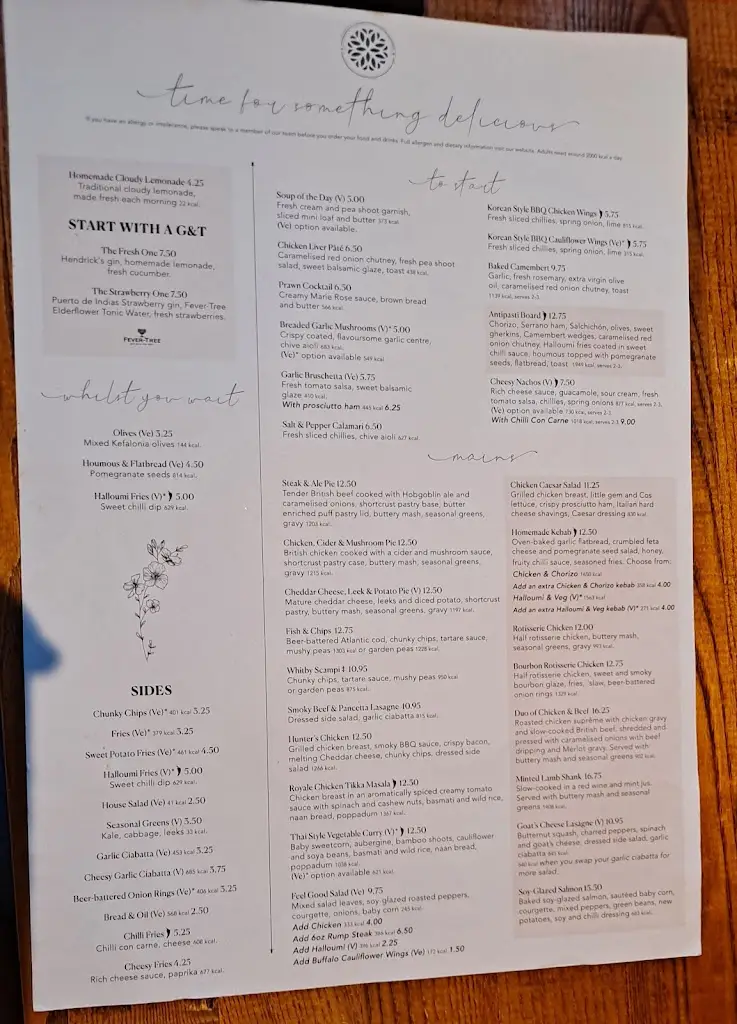 time for something delicious
If you have an allergy or intolerance, please speak to a member of our team before you order your food and drinks. Full allergen and dietary information visit our website. Adults need around 2000 kcal a day.
Homemade Cloudy Lemonade 4.25
Traditional cloudy lemonade,
made fresh each morning 22 kcal.
START WITH A G&T
The Fresh One 7.50
Hendrick's gin, homemade lemonade,
fresh cucumber.
The Strawberry One 7.50
Puerto de Indias Strawberry gin, Fever-Tree
Elderflower Tonic Water, fresh strawberries.
FEVER-TREE
whilst you wait
Olives (Ve) 3.25
Mixed Kefalonia olives 144 kcal.
Houmous & Flatbread (Ve) 4.50
Pomegranate seeds 614 kcal.
Halloumi Fries (V)* 5.00
Sweet chilli dip 629 kcal.
SIDES
Chunky Chips (Ve)* 401 kcal 3.25
Fries (Ve)* 379 kcal 3.25
Sweet Potato Fries (Ve)* 461 kcal 4.50
Halloumi Fries (V)* 5.00
Sweet chilli dip 629 kcal.
House Salad (Ve) 41 kcal 2.50
Seasonal Greens (V) 3.50
Kale, cabbage, leeks 32 kcal.
Garlic Ciabatta (Ve) 453 kcal 3.25
Cheesy Garlic Ciabatta (V) 685 kcal 3.75
Beer-battered Onion Rings (Ve)* 406 kcal 3.25
Bread & Oil (Ve) 568 kcal 2.50
Chilli Fries 5.25
Chilli con carne, cheese 608 kcal.
Cheesy Fries 4.25
Rich cheese sauce, paprika 677 kcal.
to start
Soup of the Day (V) 5.00
Fresh cream and pea shoot garnish,
sliced mini loaf and butter 573 kcal.
(Ve) option available.
Chicken Liver Pâté 6.50
Caramelised red onion chutney, fresh pea shoot
salad, sweet balsamic glaze, toast 438 kcal.
Prawn Cocktail 6.50
Creamy Marie Rose sauce, brown bread
and butter 566 kcal.
Breaded Garlic Mushrooms (V)* 5.00
Crispy coated, flavoursome garlic centre,
chive aioli 683 kcal.
(Ve)* option available 549 kcal.
Garlic Bruschetta (Ve) 5.75
Fresh tomato salsa, sweet balsamic
glaze 410 kcal.
With prosciutto ham 445 kcal 6.25
Salt & Pepper Calamari 6.50
Fresh sliced chillies, chive aioli 627 kcal.
Korean Style BBQ Chicken Wings 5.75
Fresh sliced chillies, spring onion, lime 815 kcal.
Korean Style BBQ Cauliflower Wings (Ve)* 5.75
Fresh sliced chillies, spring onion, lime 315 kcal.
Baked Camembert 9.75
Garlic, fresh rosemary, extra virgin olive
oil, caramelised red onion chutney, toast
1139 kcal, serves 2-3.
Antipasti Board 12.75
Chorizo, Serrano ham, Salchichón, olives, sweet
gherkins, Camembert wedges, caramelised red
onion chutney, Halloumi fries coated in sweet
chilli sauce, houmous topped with pomegranate
seeds, flatbread, toast 1949 kcal, serves 2-3.
Cheesy Nachos (V) 7.50
Rich cheese sauce, guacamole, sour cream, fresh
tomato salsa, chillies, spring onions 877 kcal, serves 2-3.
(Ve) option available 730 kcal, serves 2-3.
With Chilli Con Carne 1018 kcal, serves 2-3 9.00
mains
Steak & Ale Pie 12.50
Tender British beef cooked with Hobgoblin ale and
caramelised onions, shortcrust pastry base, butter
enriched puff pastry lid, buttery mash, seasonal greens,
gravy 1203 kcal.
Chicken, Cider & Mushroom Pie 12.50
British chicken cooked with a cider and mushroom sauce,
shortcrust pastry case, buttery mash, seasonal greens,
gravy 1215 kcal.
Cheddar Cheese, Leek & Potato Pie (V) 12.50
Mature cheddar cheese, leeks and diced potato, shortcrust
pastry, buttery mash, seasonal greens, gravy 1197 kcal.
Fish & Chips 12.75
Beer-battered Atlantic cod, chunky chips, tartare sauce,
mushy peas 1303 kcal or garden peas 1228 kcal.
Whitby Scampi ‡ 10.95
Chunky chips, tartare sauce, mushy peas 950 kcal
or garden peas 875 kcal.
Smoky Beef & Pancetta Lasagne 10.95
Dressed side salad, garlic ciabatta 815 kcal.
Hunter's Chicken 12.50
Grilled chicken breast, smoky BBQ sauce, crispy bacon,
melting Cheddar cheese, chunky chips, dressed side
salad 1266 kcal.
Royale Chicken Tikka Masala 12.50
Chicken breast in an aromatically spiced creamy tomato
sauce with spinach and cashew nuts, basmati and wild rice,
naan bread, poppadum 1361 kcal.
Thai Style Vegetable Curry (V)* 12.50
Baby sweetcorn, aubergine, bamboo shoots, cauliflower
and soya beans, basmati and wild rice, naan bread,
poppadum 1038 kcal.
(Ve)* option available 821 kcal.
Feel Good Salad (Ve) 9.75
Mixed salad leaves, soy glazed roasted peppers,
courgette, onions, baby corn 245 kcal.
Add Chicken 333 kcal 4.00
Add 6oz Rump Steak 386 kcal 6.50
Add Halloumi (V) 396 kcal 2.25
Add Buffalo Cauliflower Wings (Ve) 172 kcal 1.50
Chicken Caesar Salad 11.25
Grilled chicken breast, little gem and Cos
lettuce, crispy prosciutto ham, Italian hard
cheese shavings, Caesar dressing 830 kcal.
Homemade Kebab 12.50
Oven-baked garlic flatbread, crumbled feta
cheese and pomegranate seed salad, honey,
fruity chilli sauce, seasoned fries. Choose from:
Chicken & Chorizo 1650 kcal
Add an extra Chicken & Chorizo kebab 358 kcal 4.00
Halloumi & Veg (V)* 1563 kcal
Add an extra Halloumi & Veg kebab (V)* 271 kcal 4.00
Rotisserie Chicken 12.00
Half rotisserie chicken, buttery mash,
seasonal greens, gravy 993 kcal.
Bourbon Rotisserie Chicken 12.75
Half rotisserie chicken, sweet and smoky
bourbon glaze, fries, 'slaw, beer-battered
onion rings 1329 kcal.
Duo of Chicken & Beef 16.25
Roasted chicken suprême with chicken gravy
and slow-cooked British beef, shredded and
pressed with caramelised onions with beef
dripping and Merlot gravy. Served with
buttery mash and seasonal greens kcal.
Minted Lamb Shank 16.75
Slow-cooked in a red wine and mint jus.
Served with buttery mash and seasonal
greens kcal.
Goat's Cheese Lasagne (V) 10.95
Butternut squash, charred peppers, spinach
and goat's cheese, dressed side salad, garlic
ciabatta kcal.
kcal when you swap your garlic ciabatta for
more salad.
Soy-Glazed Salmon 15.50
Baked soy-glazed salmon, sautéed baby corn,
courgette, mixed peppers, green beans, new
potatoes, soy and chilli dressing kcal.